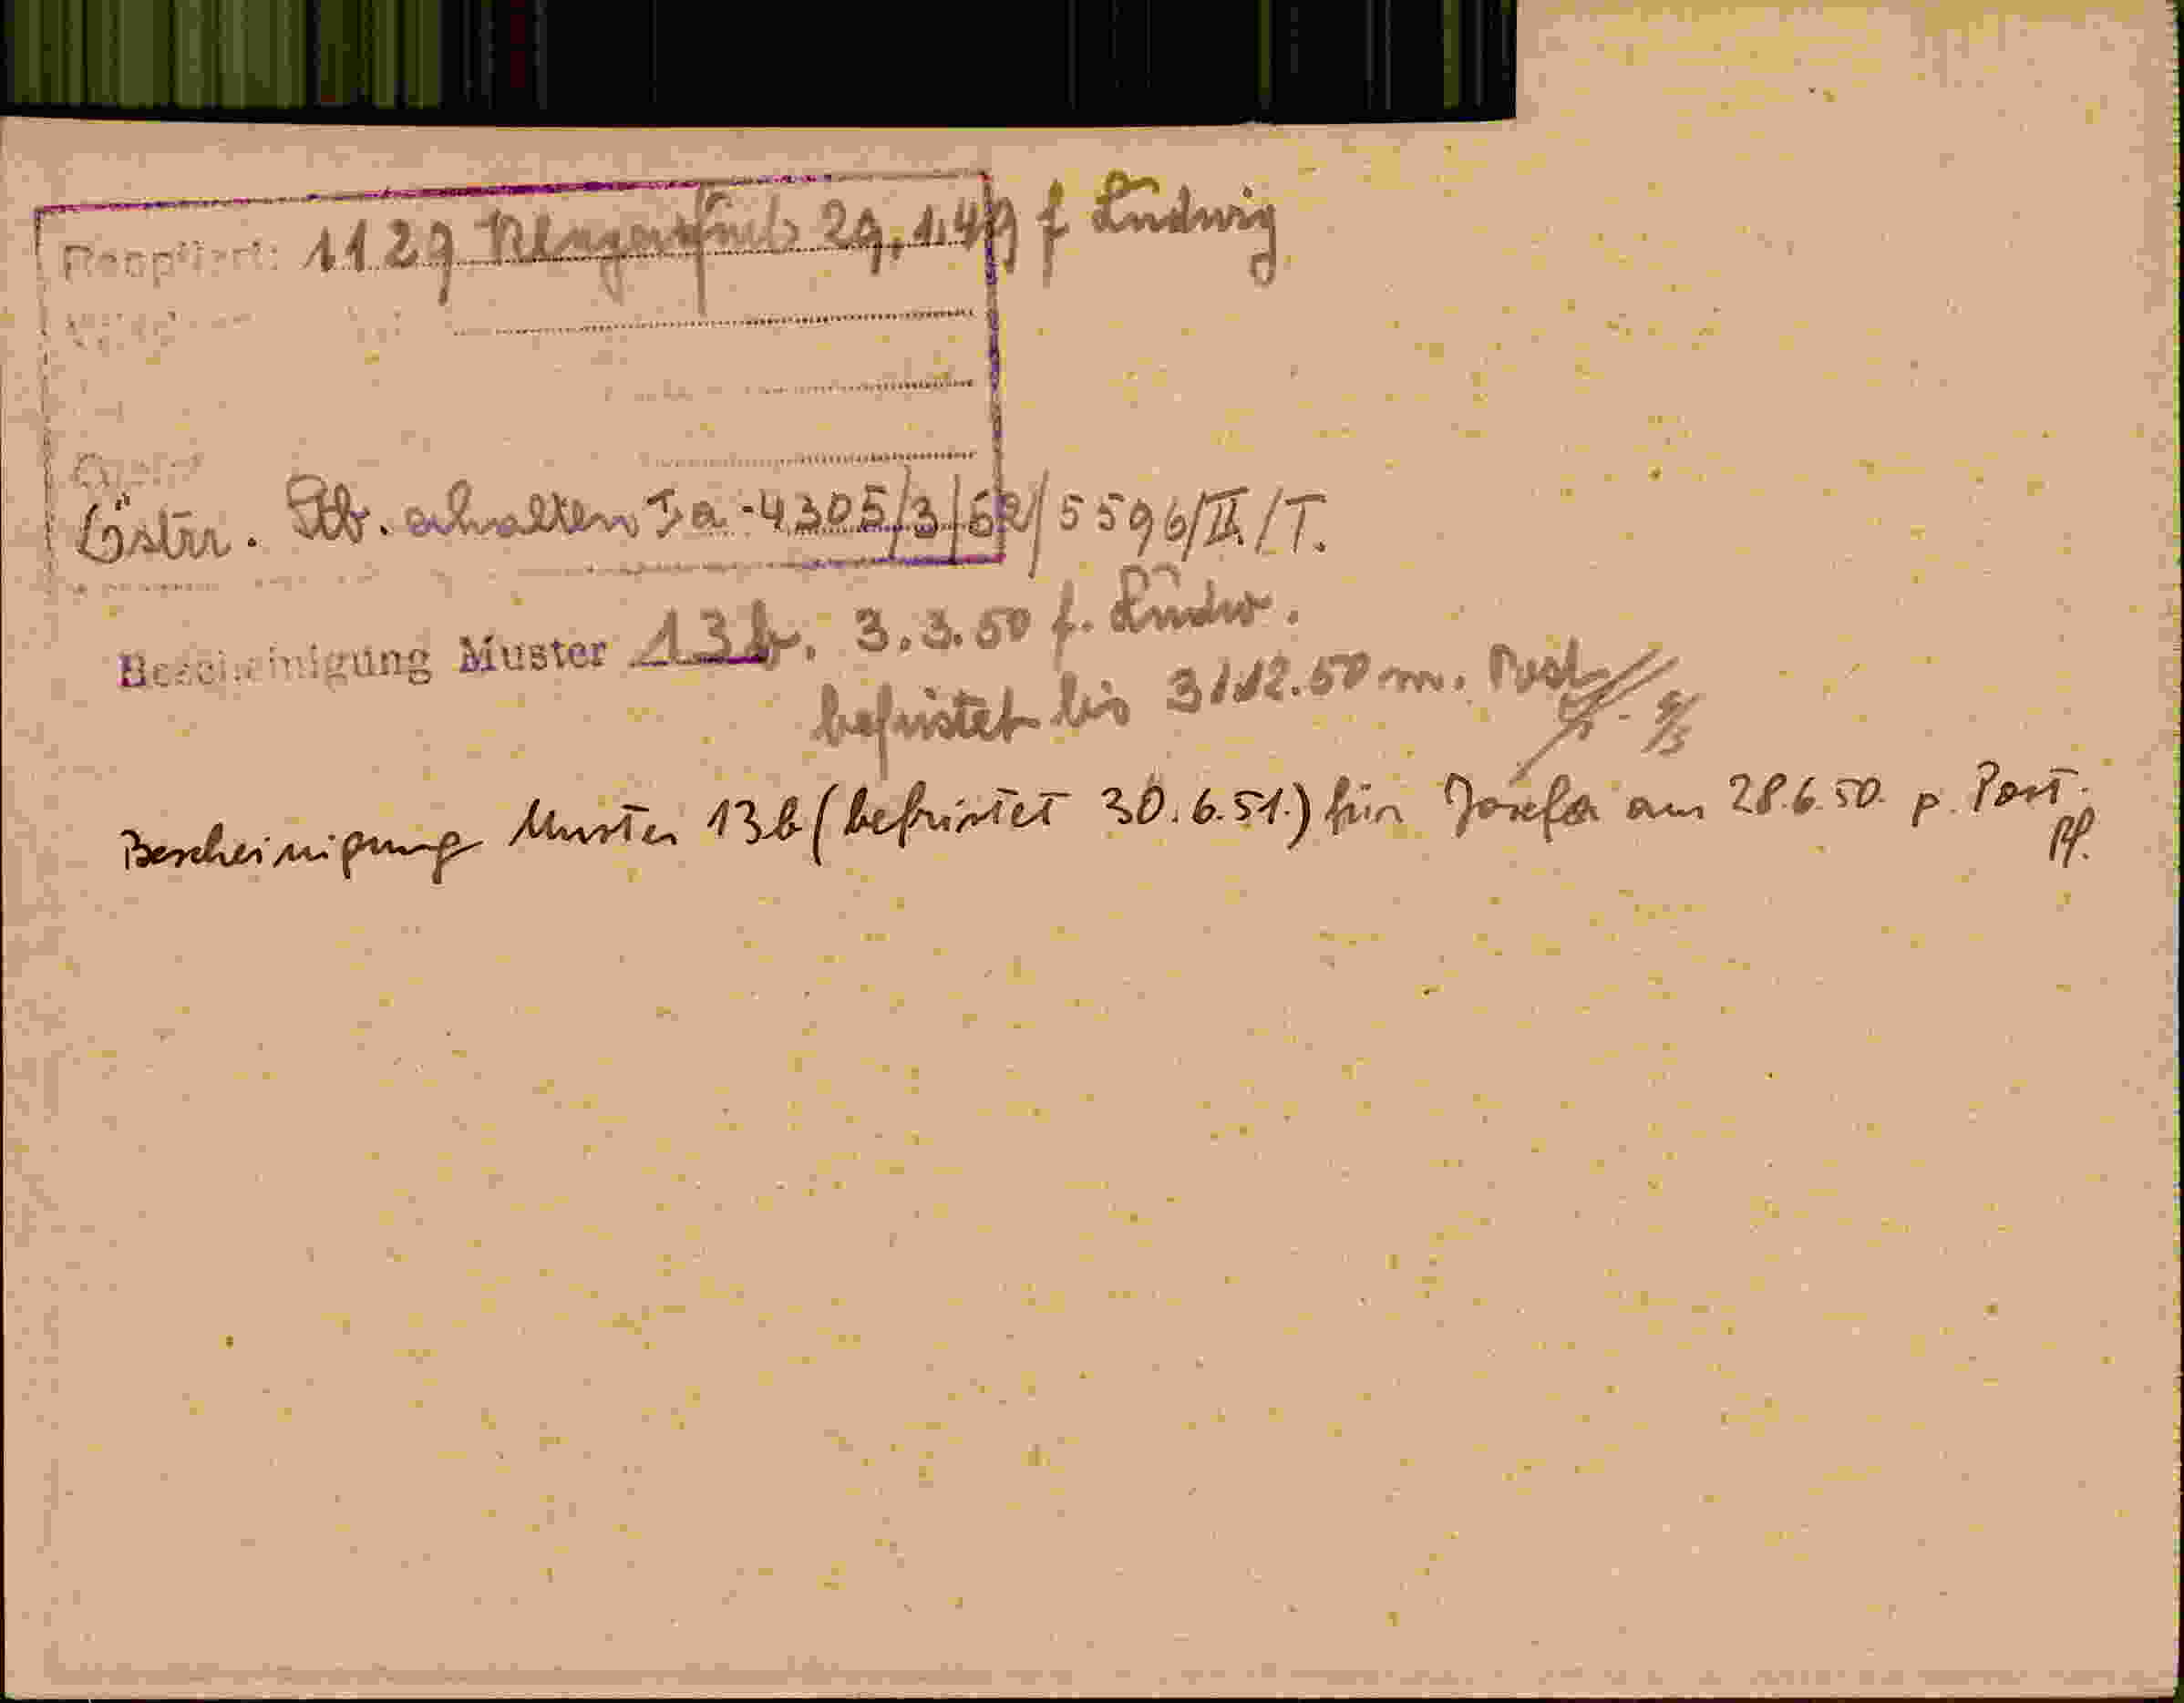 1129 29.1.49 f Ludwig
Östrr. Stb. erhalten Ia-4305/3/52/5596/II/T.
Bescheinigung Muster 13b. 3.3.50 f. Ludw.
befristet bis 31.12.50 m. Post
Bescheinigung Muster 13b (befristet 30.6.51.) für Josefa am 28.6.50. p. Post.
Pf.